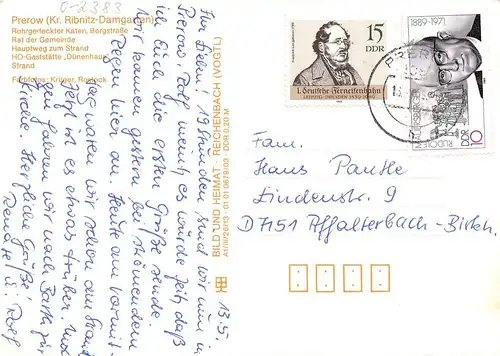 0-2383
Prerow (Kr. Ribnitz-Damgarten)
Rohrgedeckter Katen, Bergstraße
Rat der Gemeinde
Hauptweg zum Strand
HO-Gaststätte „Dünenhaus"
Strand
Farbfotos: Krüger, Rostock
13.5.
Ihr Lieben! 19 Stunden sind wir nun in
Prerow, Rolf meint, es würde Zeit, daß
ich Euch die ersten Grüße sende.
Wir kamen gestern bei strömendem
Regen hier an. Heute am Vormit-
tag waren wir schon am Strand
Jetzt ist es etwas trüber. Und
fahren wir nach Barth zur
Kirche. Herzliche Grüße!
Renate u. Rolf
BILD UND HEIMAT · REICHENBACH (VOGTL)
A1/III/26/13 01 01 0679/03 DDR 0,20 M
15
DDR
1. deutsche Ferneisenbahn
LEIPZIG-DRESDEN 1839-1989
1889-1971
RUDOLF
DDR
10
PRER
Fam.
Hans Pantle
Lindenstr. 9
D7151 Affalterbach-Birkh.